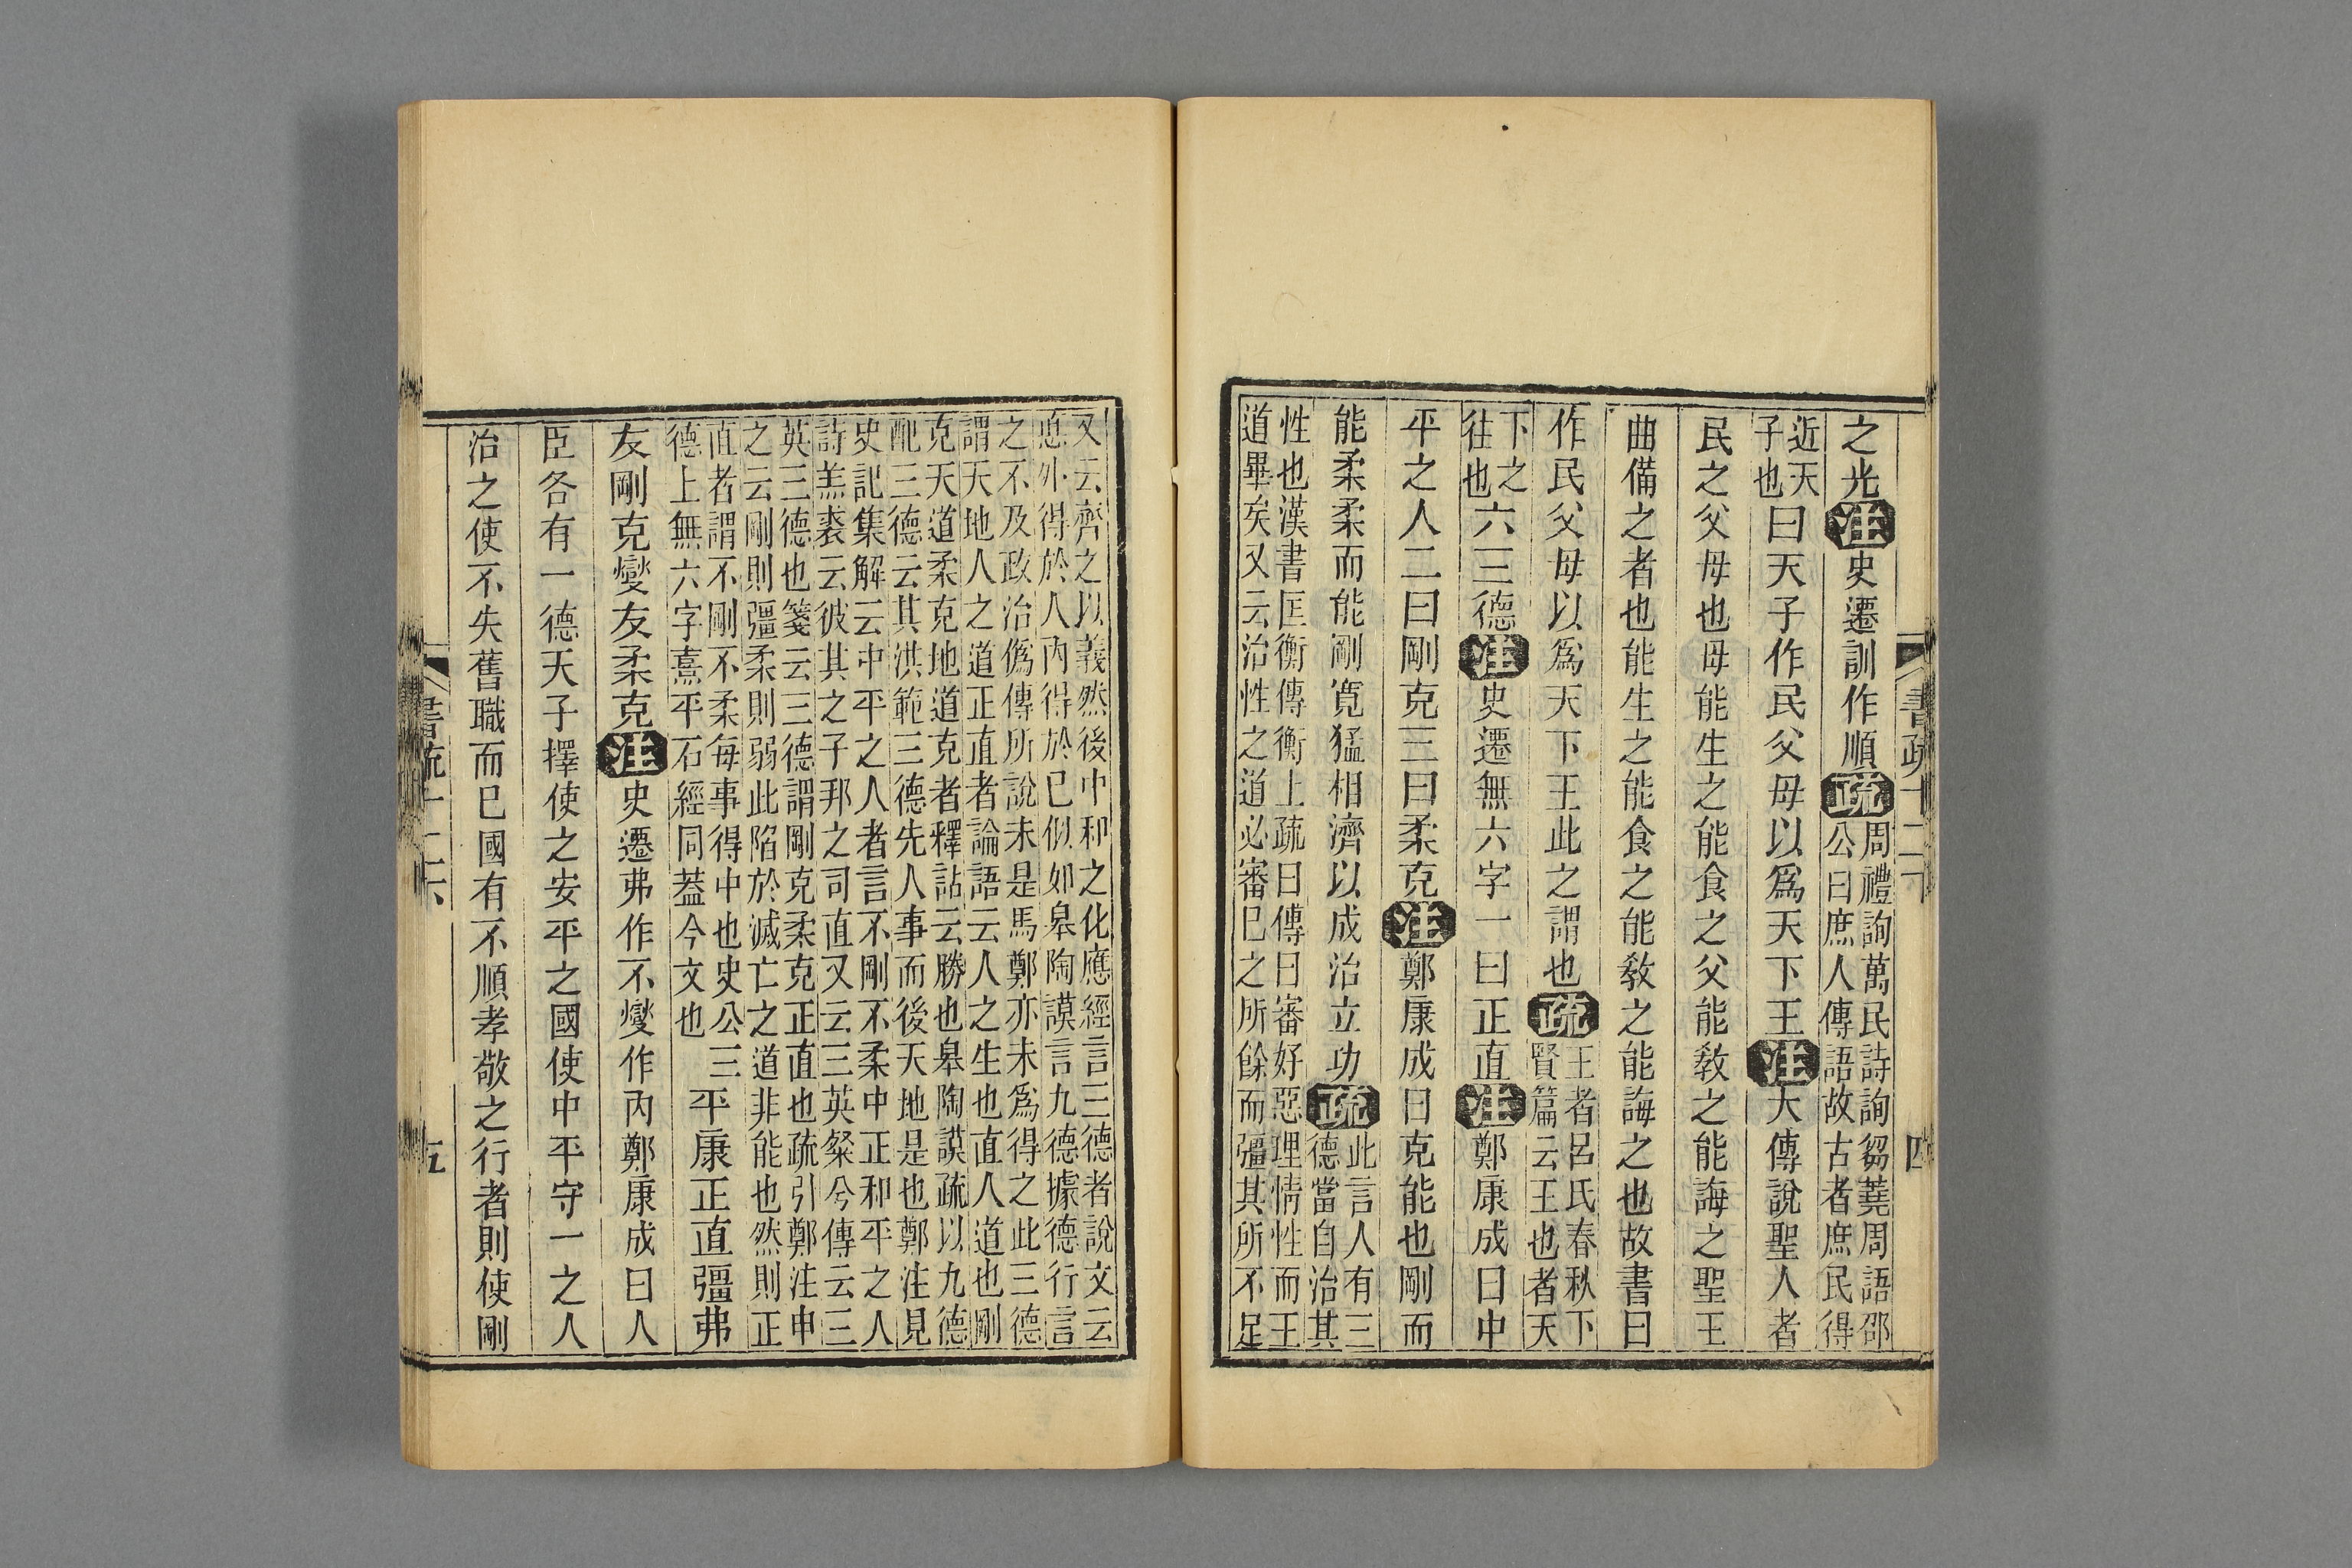 書疏十二下 四
之光注史遷訓作順疏周禮詢萬民詩詢芻蕘周語邵公曰庶人傳語故古者庶民得
近天子也曰天子作民父母以爲天下王注大傳說聖人者
民之父母也母能生之能食之父能敎之能誨之聖王
曲備之者也能生之能食之能敎之能誨之也故書曰
作民父母以爲天下王此之謂也疏王者呂氏春秋下賢篇云王也者天
下之往也六三德注史遷無六字一曰正直注鄭康成曰中
平之人二曰剛克三曰柔克注鄭康成曰克能也剛而
能柔柔而能剛寬猛相濟以成治立功疏此言人有三德當自治其
性也漢書匡衡傳衡上疏曰傳曰審好惡理情性而王
道畢矣又云治性之道必審巳之所餘而彊其所不足
又云齊之以義然後中和之化應經言三德者說文云
悳外得於人内得於已似如皋陶謨言九德據德行言
之不及政治僞傳所說未是馬鄭亦未爲得之此三德
謂天地人之道正直者論語云人之生也直人道也剛
克天道柔克地道克者釋詁云勝也皋陶謨疏以九德
配三德云其洪範三德先人事而後天地是也鄭注見
史記集解云中平之人者言不剛不柔中正和平之人
詩羔裘云彼其之子邦之司直又云三英粲兮傳云三
英三德也箋云三德謂剛克柔克正直也疏引鄭注申
之云剛則彊柔則弱此陷於滅亡之道非能也然則正
直者謂不剛不柔每事得中也史公三德上無六字熹平石經同葢今文也平康正直彊弗
友剛克燮友柔克注史遷弗作不燮作内鄭康成曰人
臣各有一德天子擇使之安平之國使中平守一之人
治之使不失舊職而已國有不順孝敬之行者則使剛
書疏十二下 五